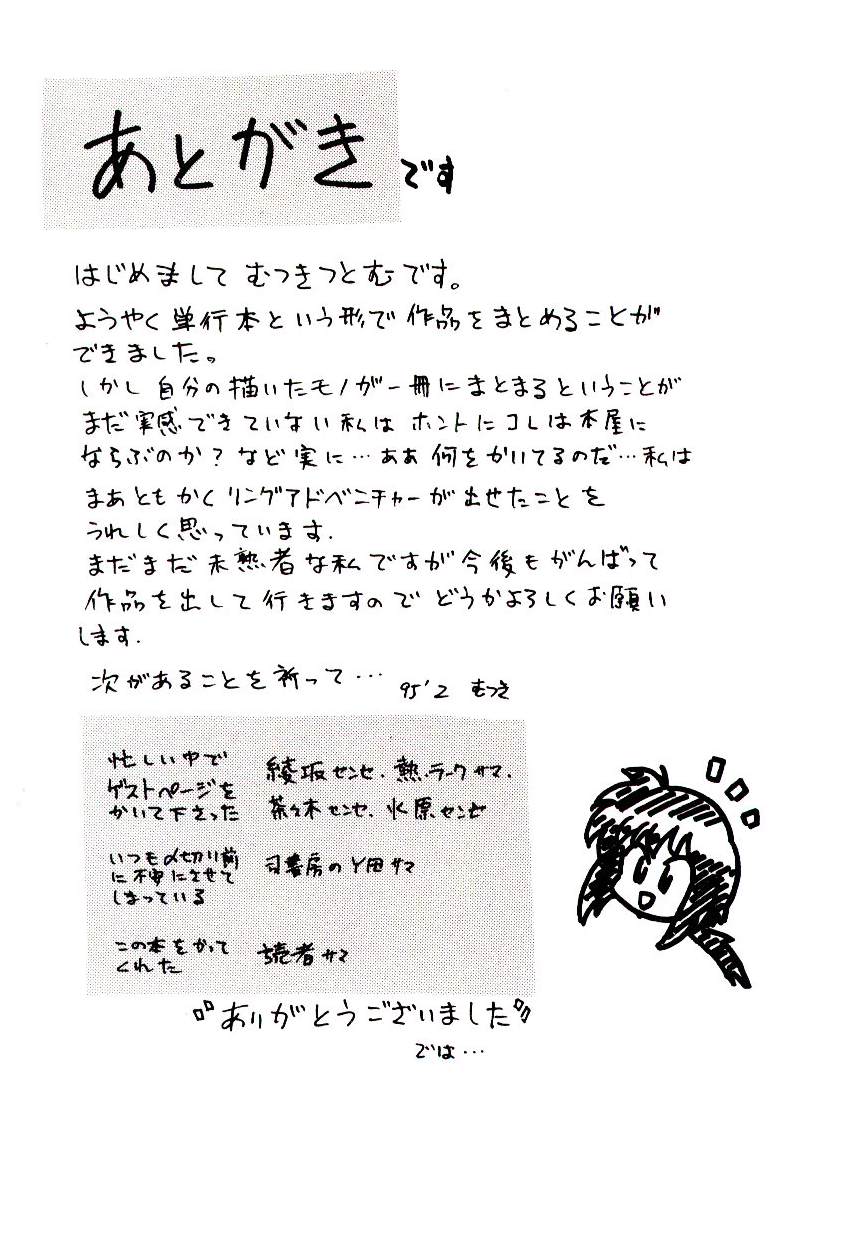 あとがきです
はじめまして むつきつとむです。
ようやく単行本という形で作品をまとめることが
できました。
しかし自分の描いたモノが一冊にまとまるということが
まだ実感できていない私は ホントにコレは本屋に
ならぶのか？など実に…ああ 何をかいてるのだ…私は
まあともかくリングアドベンチャーが出せたことを
うれしく思っています.
まだまだ未熟者な私ですが今後もがんばって
作品を出して行きますのでどうかよろしくお願い
します.
次があることを祈って… 95'2 むつき
忙しい中で
ゲストページを
かいて下さった
綾坂センセ.熱.ラークサマ.
茶々木センセ.水原.センセ
いつも〆切り前
に不安にさせて
しまっている
司書房のY田サマ
この本をかって
くれた
読者サマ
ありがとうございました
では…